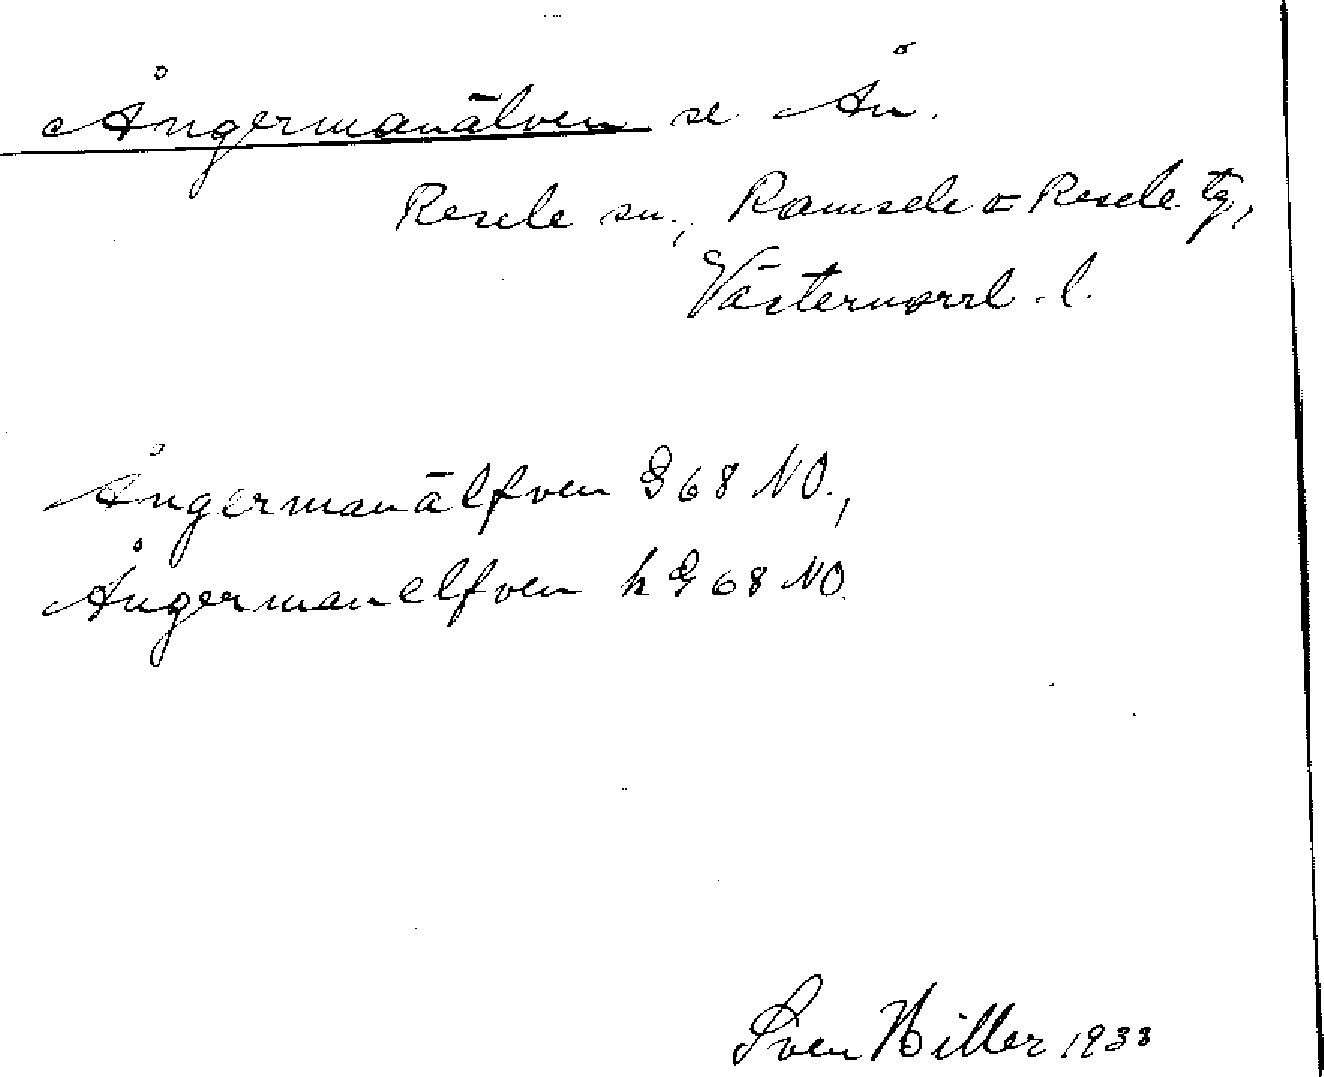 Ångermanälven se Ån.
Resele sn., Ramsele o Resele tg,
Västernorrl. l.
Ångermanälfven G 68 NO.,
Ångermanelfven h G 68 NO.
Sven Hiller 1933